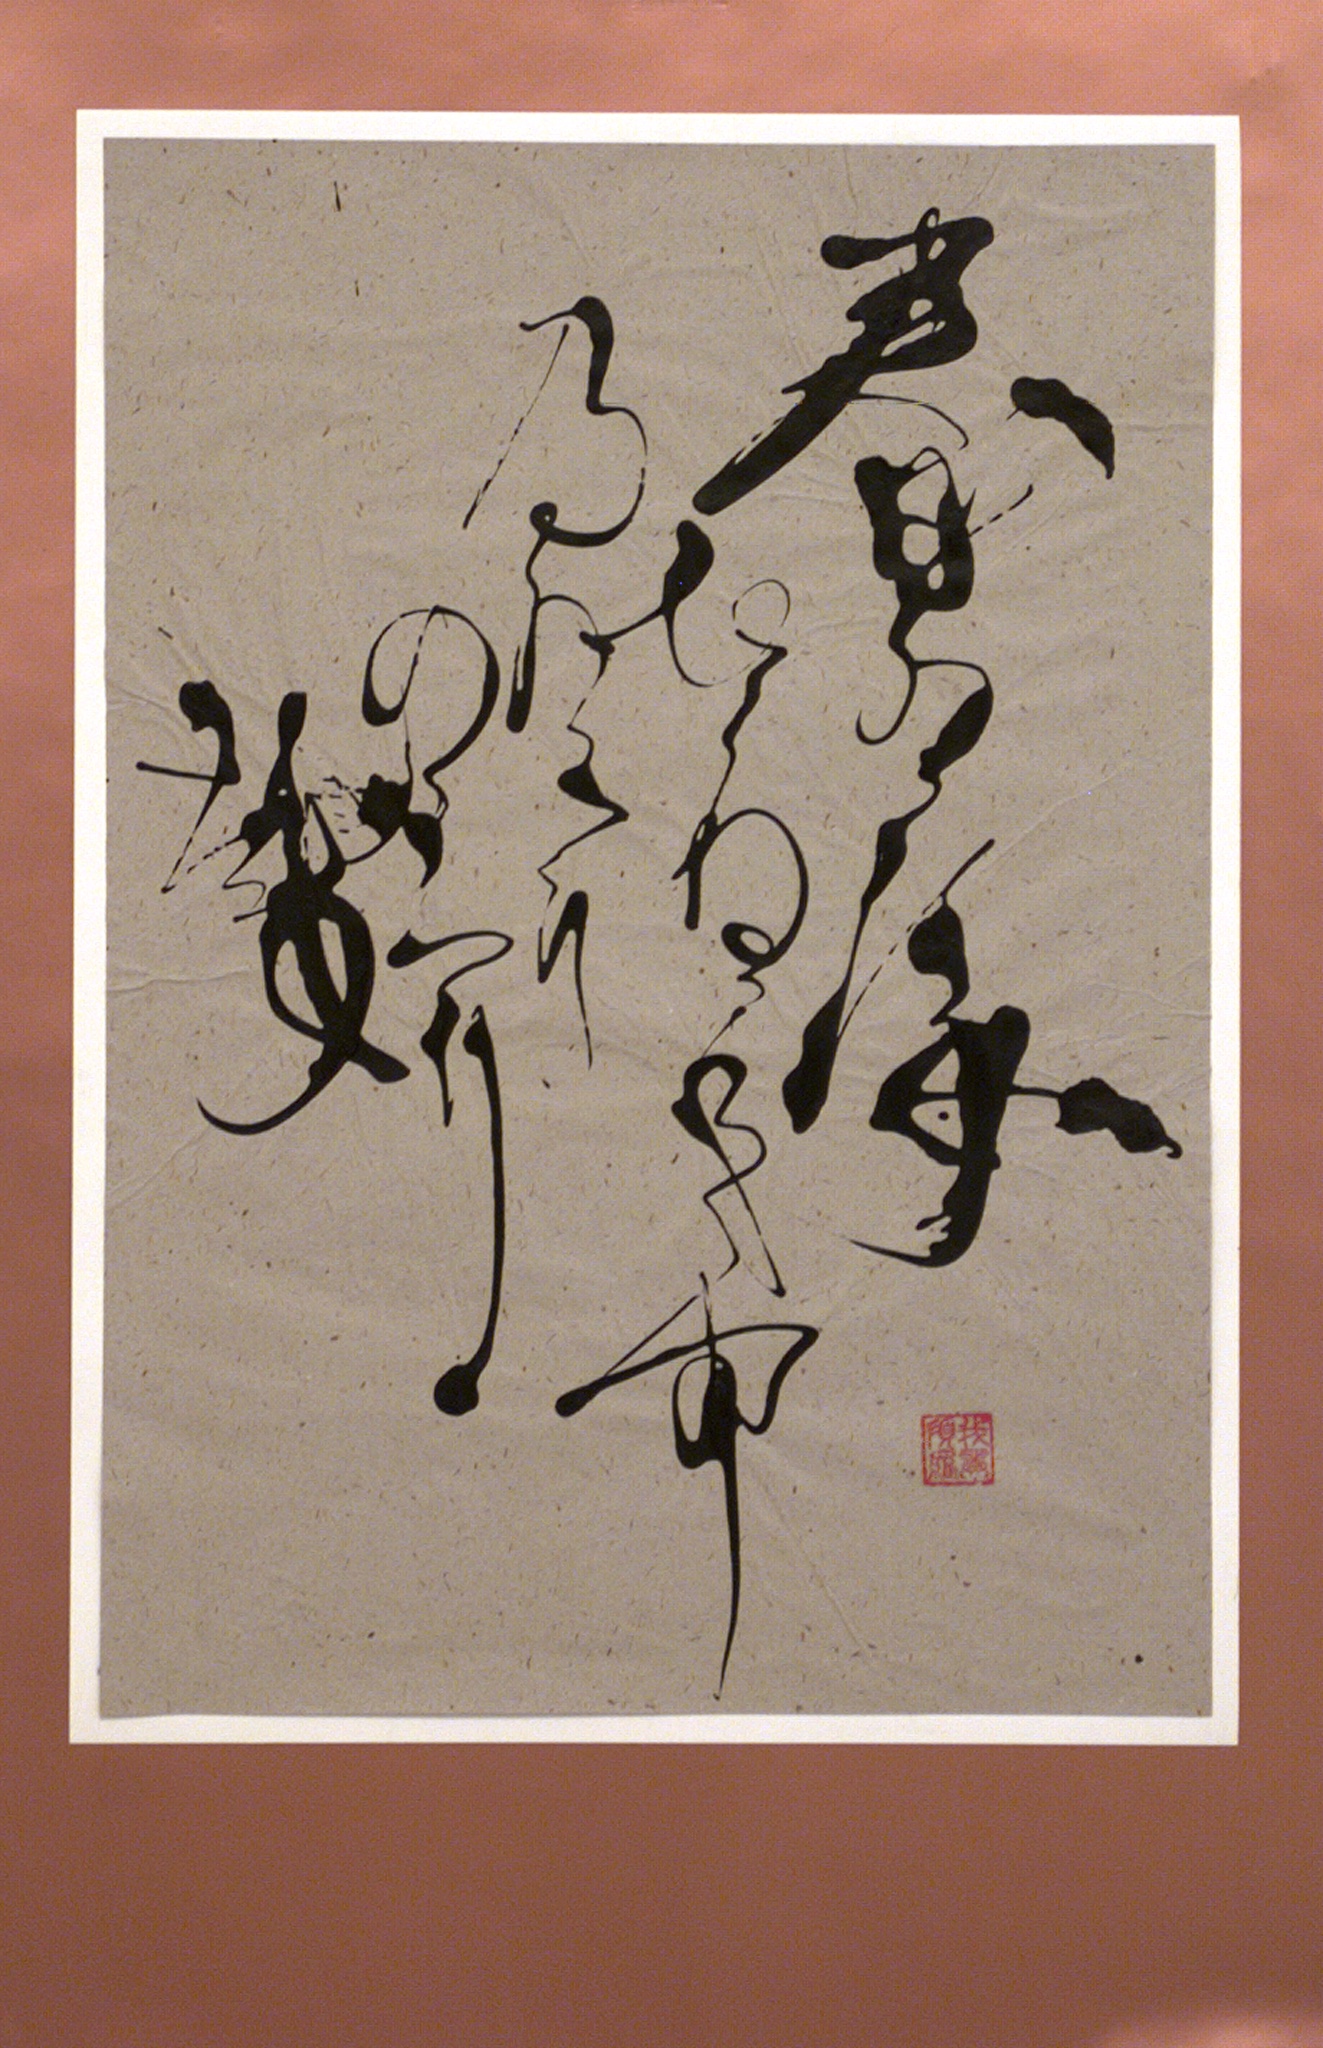 春の海
ひねもす
のたり
のたり
哉